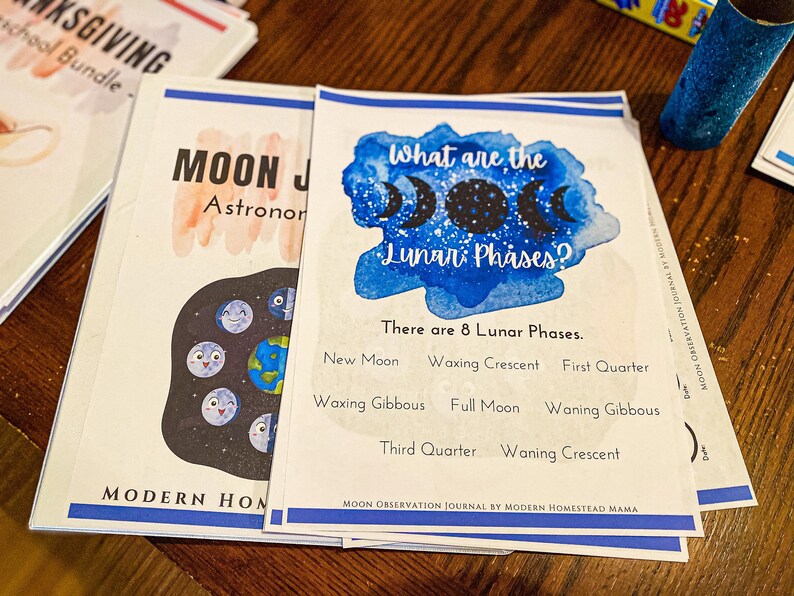 ANKSGIVING
school Bundle -
20
MOON J
Astronom
MODERN HOM
What are the
Lunar Phases?
There are 8 Lunar Phases.
New Moon Waxing Crescent First Quarter
Waxing Gibbous Full Moon Waning Gibbous
Third Quarter Waning Crescent
MOON OBSERVATION JOURNAL BY MODERN HOMESTEAD MAMA
Date:
Date:
MOON OBSERVATION JOURNAL BY MODERN HOM